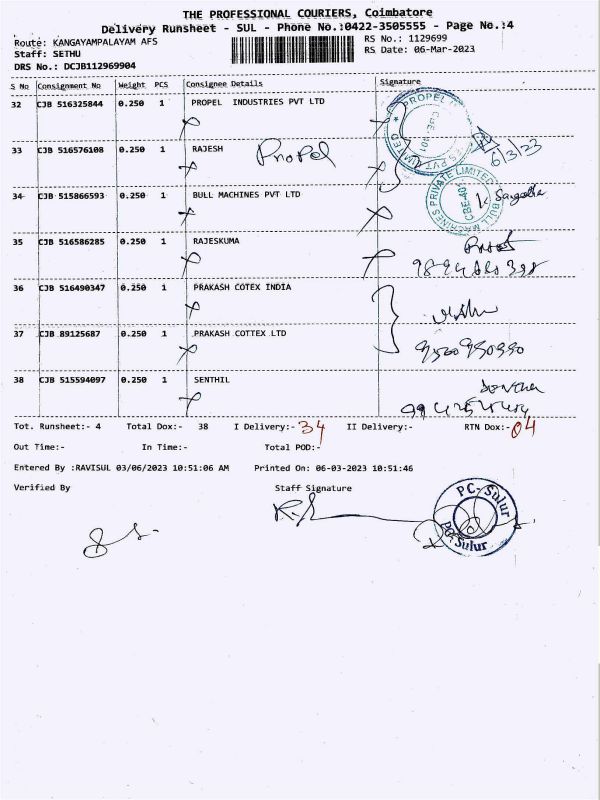 THE PROFESSIONAL COURIERS, Coimbatore
Delivery Runsheet - SUL - Phone No.:0422-3505555 - Page No.:4
Route: KANGAYAMPALAYAM AFS RS No.: 1129699
Staff: SETHU RS Date: 06-Mar-2023
DRS No.: DCJB112969904
S No Consignment No Weight PCS Consignee Details Signature
32 CJB 516325844 0.250 1 PROPEL INDUSTRIES PVT LTD
33 CJB 516576108 0.250 1 RAJESH Propel 6/3/23
34 CJB 515866593 0.250 1 BULL MACHINES PVT LTD
35 CJB 516586285 0.250 1 RAJESKUMA
36 CJB 516490347 0.250 1 PRAKASH COTEX INDIA
37 CJB 89125687 0.250 1 PRAKASH COTTEX LTD
38 CJB 515594097 0.250 1 SENTHIL
Tot. Runsheet:- 4 Total Dox:- 38 I Delivery:- 34 II Delivery:- RTN Dox:- 04
Out Time:- In Time:- Total POD:-
Entered By :RAVISUL 03/06/2023 10:51:06 AM Printed On: 06-03-2023 10:51:46
Verified By Staff Signature
PC-Sulur
PC-Sulur